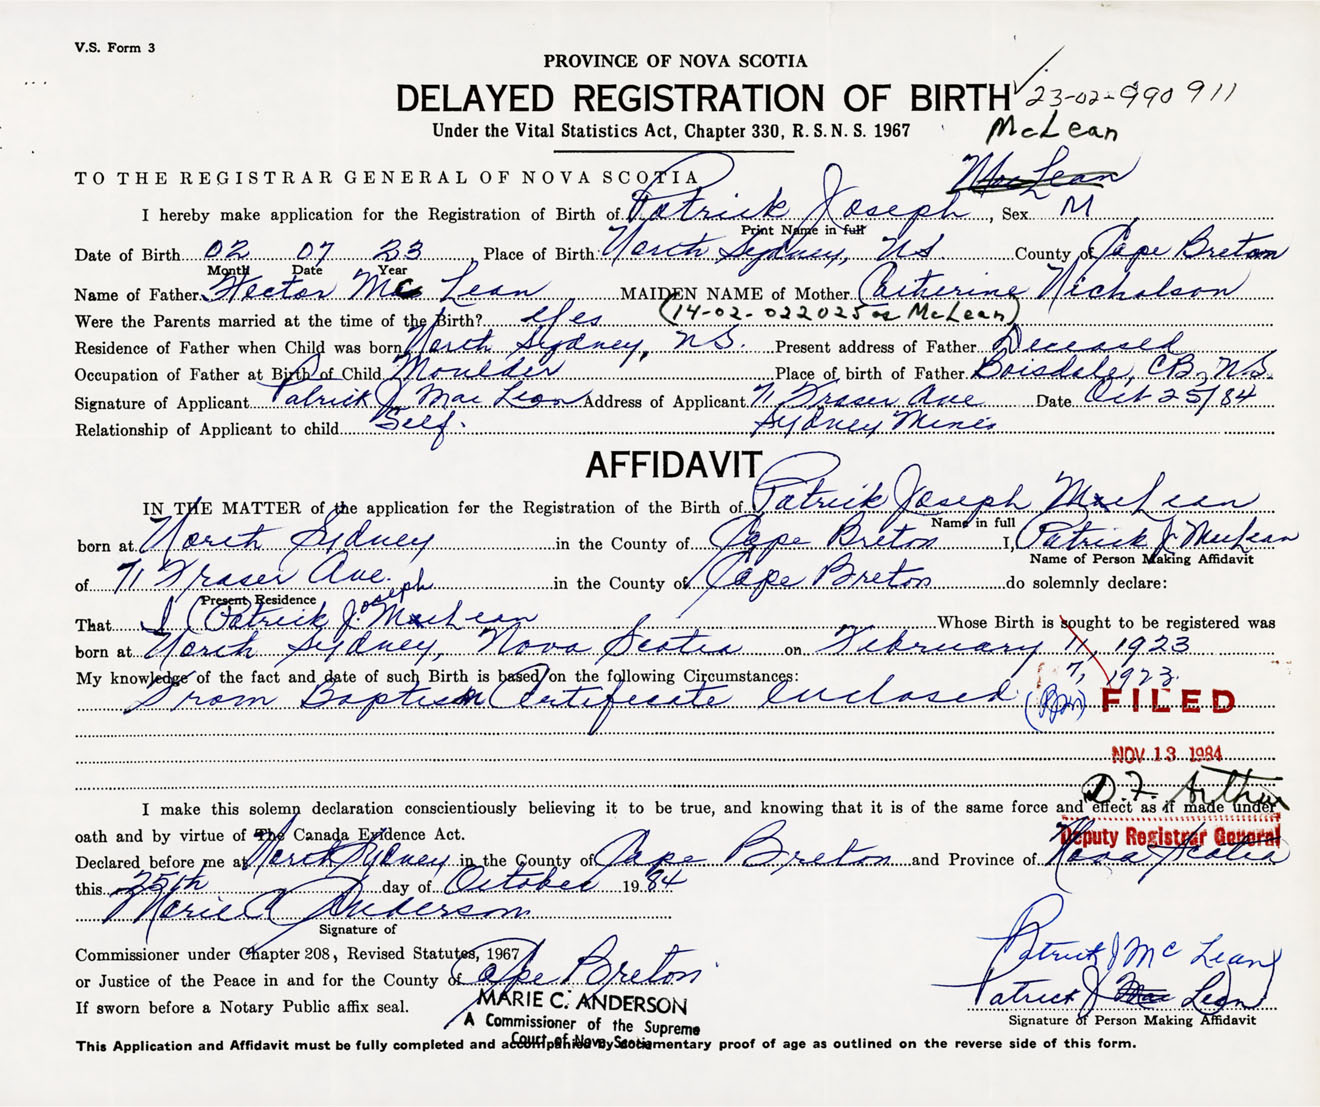 V.S. Form 3
PROVINCE OF NOVA SCOTIA
DELAYED REGISTRATION OF BIRTH ✓ 23-02-990 911
Under the Vital Statistics Act, Chapter 330, R.S.N.S. 1967
McLean
TO THE REGISTRAR GENERAL OF NOVA SCOTIA MacLean
I hereby make application for the Registration of Birth of Patrick Joseph, Sex M
Print Name in full
Date of Birth 02 07 23 Place of Birth: North Sydney, NS County of Cape Breton
Month Date Year
Name of Father Hector Mc Lean MAIDEN NAME of Mother Catherine Nicholson
Were the Parents married at the time of the Birth? Yes (14-02-022025 as McLean)
Residence of Father when Child was born North Sydney, N.S. Present address of Father Deceased
Occupation of Father at Birth of Child Moulder Place of birth of Father Boisdale, CB, N.S.
Signature of Applicant Patrick J. Mac Lean Address of Applicant 71 Fraser Ave Date Oct 25/84
Relationship of Applicant to child Self. Sydney Mines
AFFIDAVIT
IN THE MATTER of the application for the Registration of the Birth of Patrick Joseph MacLean
Name in full
born at North Sydney in the County of Cape Breton I, Patrick J. MacLean
Name of Person Making Affidavit
of 71 Fraser Ave. in the County of Cape Breton do solemnly declare:
Present Residence
That I (Patrick J. Joseph MacLean Whose Birth is sought to be registered was
born at North Sydney, Nova Scotia on February 11, 1923
My knowledge of the fact and date of such Birth is based on the following Circumstances: 7, 1923.
From Baptism Certificate enclosed
FILED
NOV 13 1984
D.F. Arthur
I make this solemn declaration conscientiously believing it to be true, and knowing that it is of the same force and effect as if made under
oath and by virtue of The Canada Evidence Act.
Deputy Registrar General
Declared before me at North Sydney in the County of Cape Breton and Province of Nova Scotia
this 25th day of October 1984
Marie C Anderson
Signature of
Commissioner under Chapter 208, Revised Statutes, 1967
or Justice of the Peace in and for the County of Cape Breton
If sworn before a Notary Public affix seal.
MARIE C. ANDERSON
A Commissioner of the Supreme
Court of Nova Scotia
Patrick J Mc Lean
Patrick J Mac Lean
Signature of Person Making Affidavit
This Application and Affidavit must be fully completed and accompanied by documentary proof of age as outlined on the reverse side of this form.